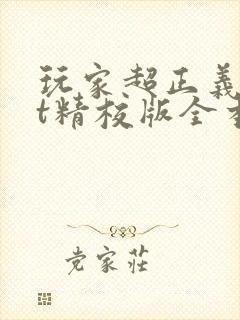 玩家超正义
t精校版全
党家莊